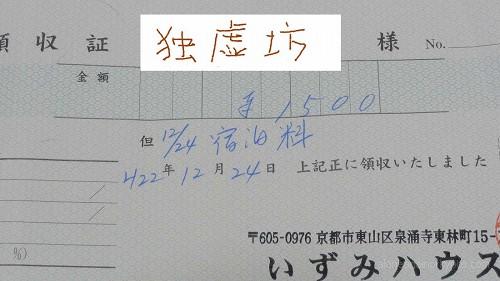 領収証 独虚坊 様 No.
金額
¥1500
但 12/24 宿泊料
H22年12月24日 上記正に領収いたしました
%)
〒605-0976 京都市東山区泉涌寺東林町15-
いずみハウス